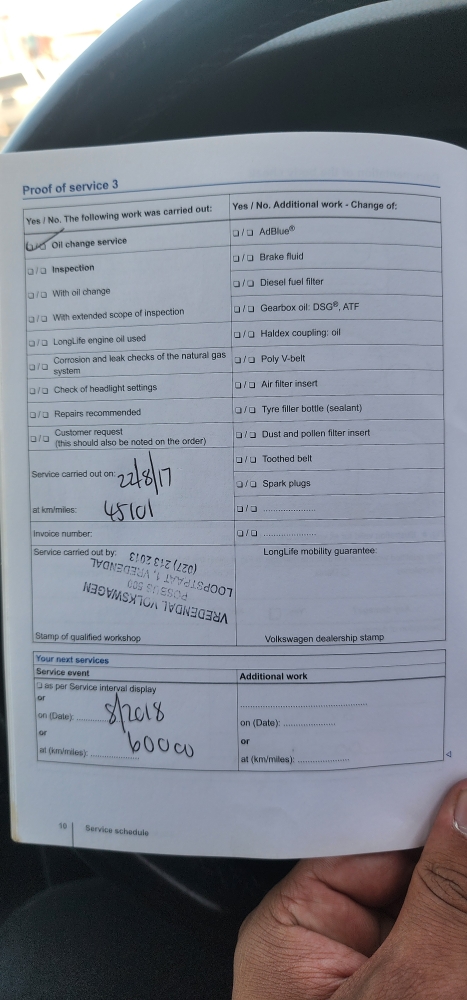 Proof of service 3
Yes / No. The following work was carried out:
☑/☐ Oil change service
☐/☐ Inspection
☐/☐ With oil change
☐/☐ With extended scope of inspection
☐/☐ LongLife engine oil used
☐/☐ Corrosion and leak checks of the natural gas
system
☐/☐ Check of headlight settings
☐/☐ Repairs recommended
☐/☐ Customer request
(this should also be noted on the order)
Service carried out on: 22/8/17
at km/miles: 45101
Invoice number:
Service carried out by:
VREDENDAL VOLKSWAGEN
POSBUS 500
LOOPSTRAAT 1, VREDENDAL
(027) 213 2013
Stamp of qualified workshop
Yes / No. Additional work - Change of:
☐/☐ AdBlue®
☐/☐ Brake fluid
☐/☐ Diesel fuel filter
☐/☐ Gearbox oil: DSG®, ATF
☐/☐ Haldex coupling: oil
☐/☐ Poly V-belt
☐/☐ Air filter insert
☐/☐ Tyre filler bottle (sealant)
☐/☐ Dust and pollen filter insert
☐/☐ Toothed belt
☐/☐ Spark plugs
☐/☐ ....................
☐/☐ ....................
LongLife mobility guarantee:
Volkswagen dealership stamp
Your next services
Service event
☐ as per Service interval display
or
on (Date): 8/2018
or
at (km/miles): 60000
Additional work
on (Date): ....................
or
at (km/miles): ....................
10 Service schedule